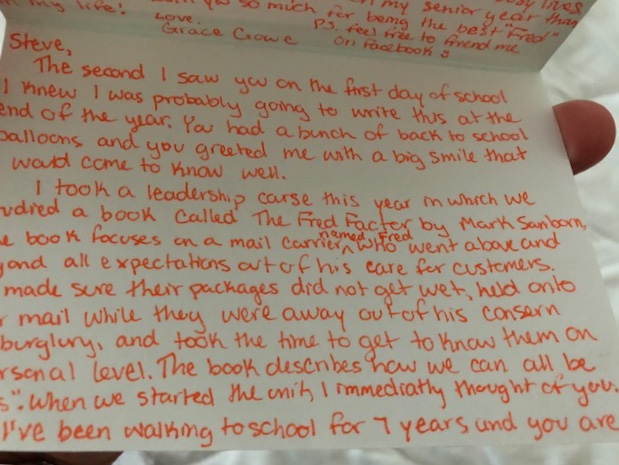 my life! so much for being the best "Fred"
my senior year than
Love, P.S. feel free to friend me
Grace Crowe on Facebook
Steve,
The second I saw you on the first day of school
I knew I was probably going to write this at the
end of the year. You had a bunch of back to school
balloons and you greeted me with a big smile that
would come to know well.
I took a leadership carse this year in which we
udied a book called The Fred Factor by Mark Sanborn,
e book focuses on a mail carrier named Fred who went above and
yond all expectations out of his care for customers.
made sure their packages did not get wet, held onto
r mail while they were away out of his consern
burglury, and took the time to get to know them on
rsonal level. The book describes how we can all be
s". When we started the unit, I immediatly thought of you.
I've been walking to school for 7 years and you are